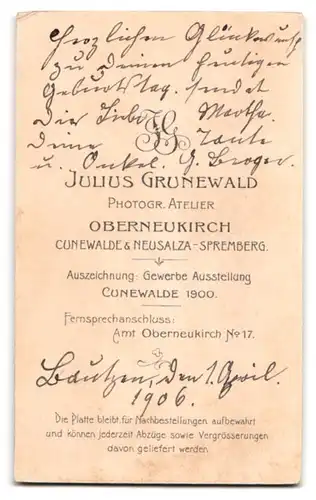 Herzlichen Glückwunsch
zu deinem heutigen
Geburtstag. sendet
dir liebe Martha.
JG
deine Tante
u. Onkel. G.
JULIUS GRUNEWALD
PHOTOGR. ATELIER
OBERNEUKIRCH
CUNEWALDE & NEUSALZA-SPREMBERG.
Auszeichnung: Gewerbe Ausstellung
CUNEWALDE 1900.
Fernsprechanschluss:
Amt Oberneukirch No 17.
Bautzen, den 1. April.
1906.
Die Platte bleibt für Nachbestellungen aufbewahrt
und können jederzeit Abzüge sowie Vergrösserungen
davon geliefert werden